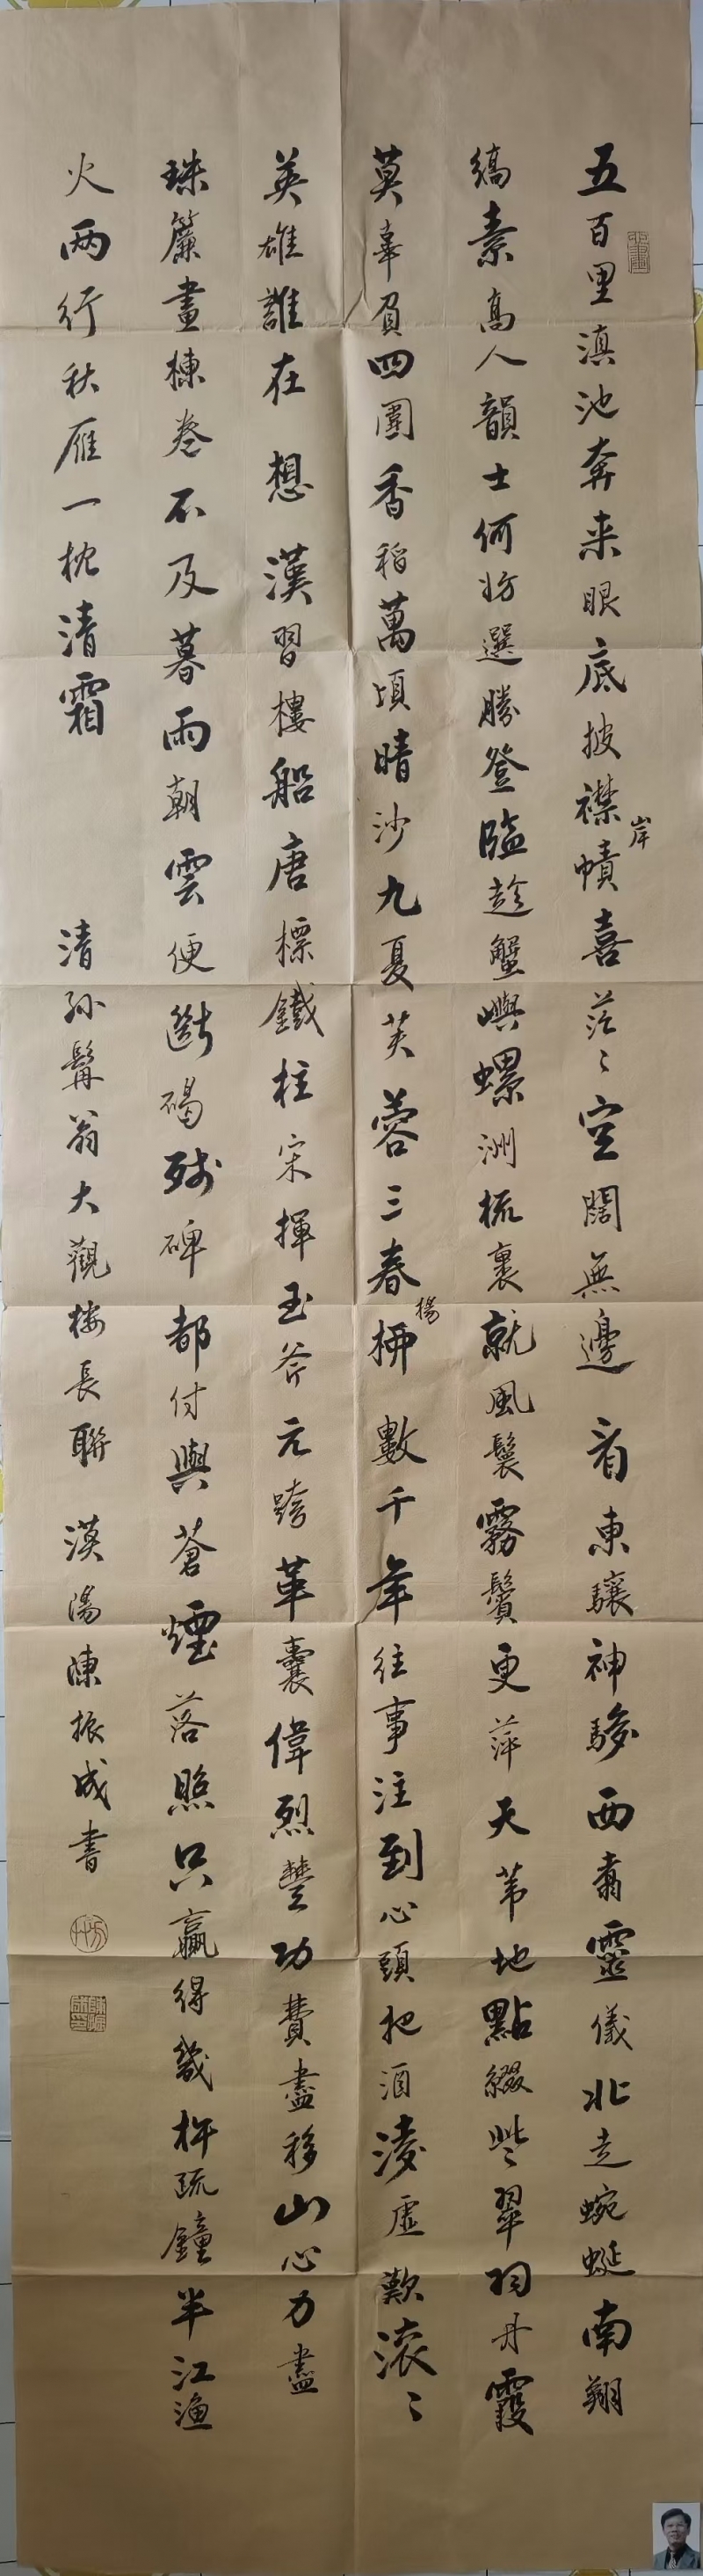 五百里滇池奔来眼底披襟岸幘喜茫〻空闊無邊看東驤神駿西翥靈儀北走蜿蜒南翔
縞素高人韻士何妨選勝登臨趁蟹嶼螺洲梳裹就風鬟霧鬢更萍天葦地點綴些翠羽丹霞
莫辜負四圍香稻萬頃晴沙九夏芙蓉三春楊柳 數千年往事注到心頭把酒淩虛歎滚〻
英雄誰在 想漢習樓船唐標鐵柱宋揮玉斧元跨革囊偉烈豐功費盡移山心力盡
珠簾畫棟卷不及暮雨朝雲便斷碣殘碑都付與蒼煙落照只贏得幾杵疏鐘半江漁
火兩行秋雁一枕清霜 清孫髯翁大觀樓長聯 漢陽陳振成書